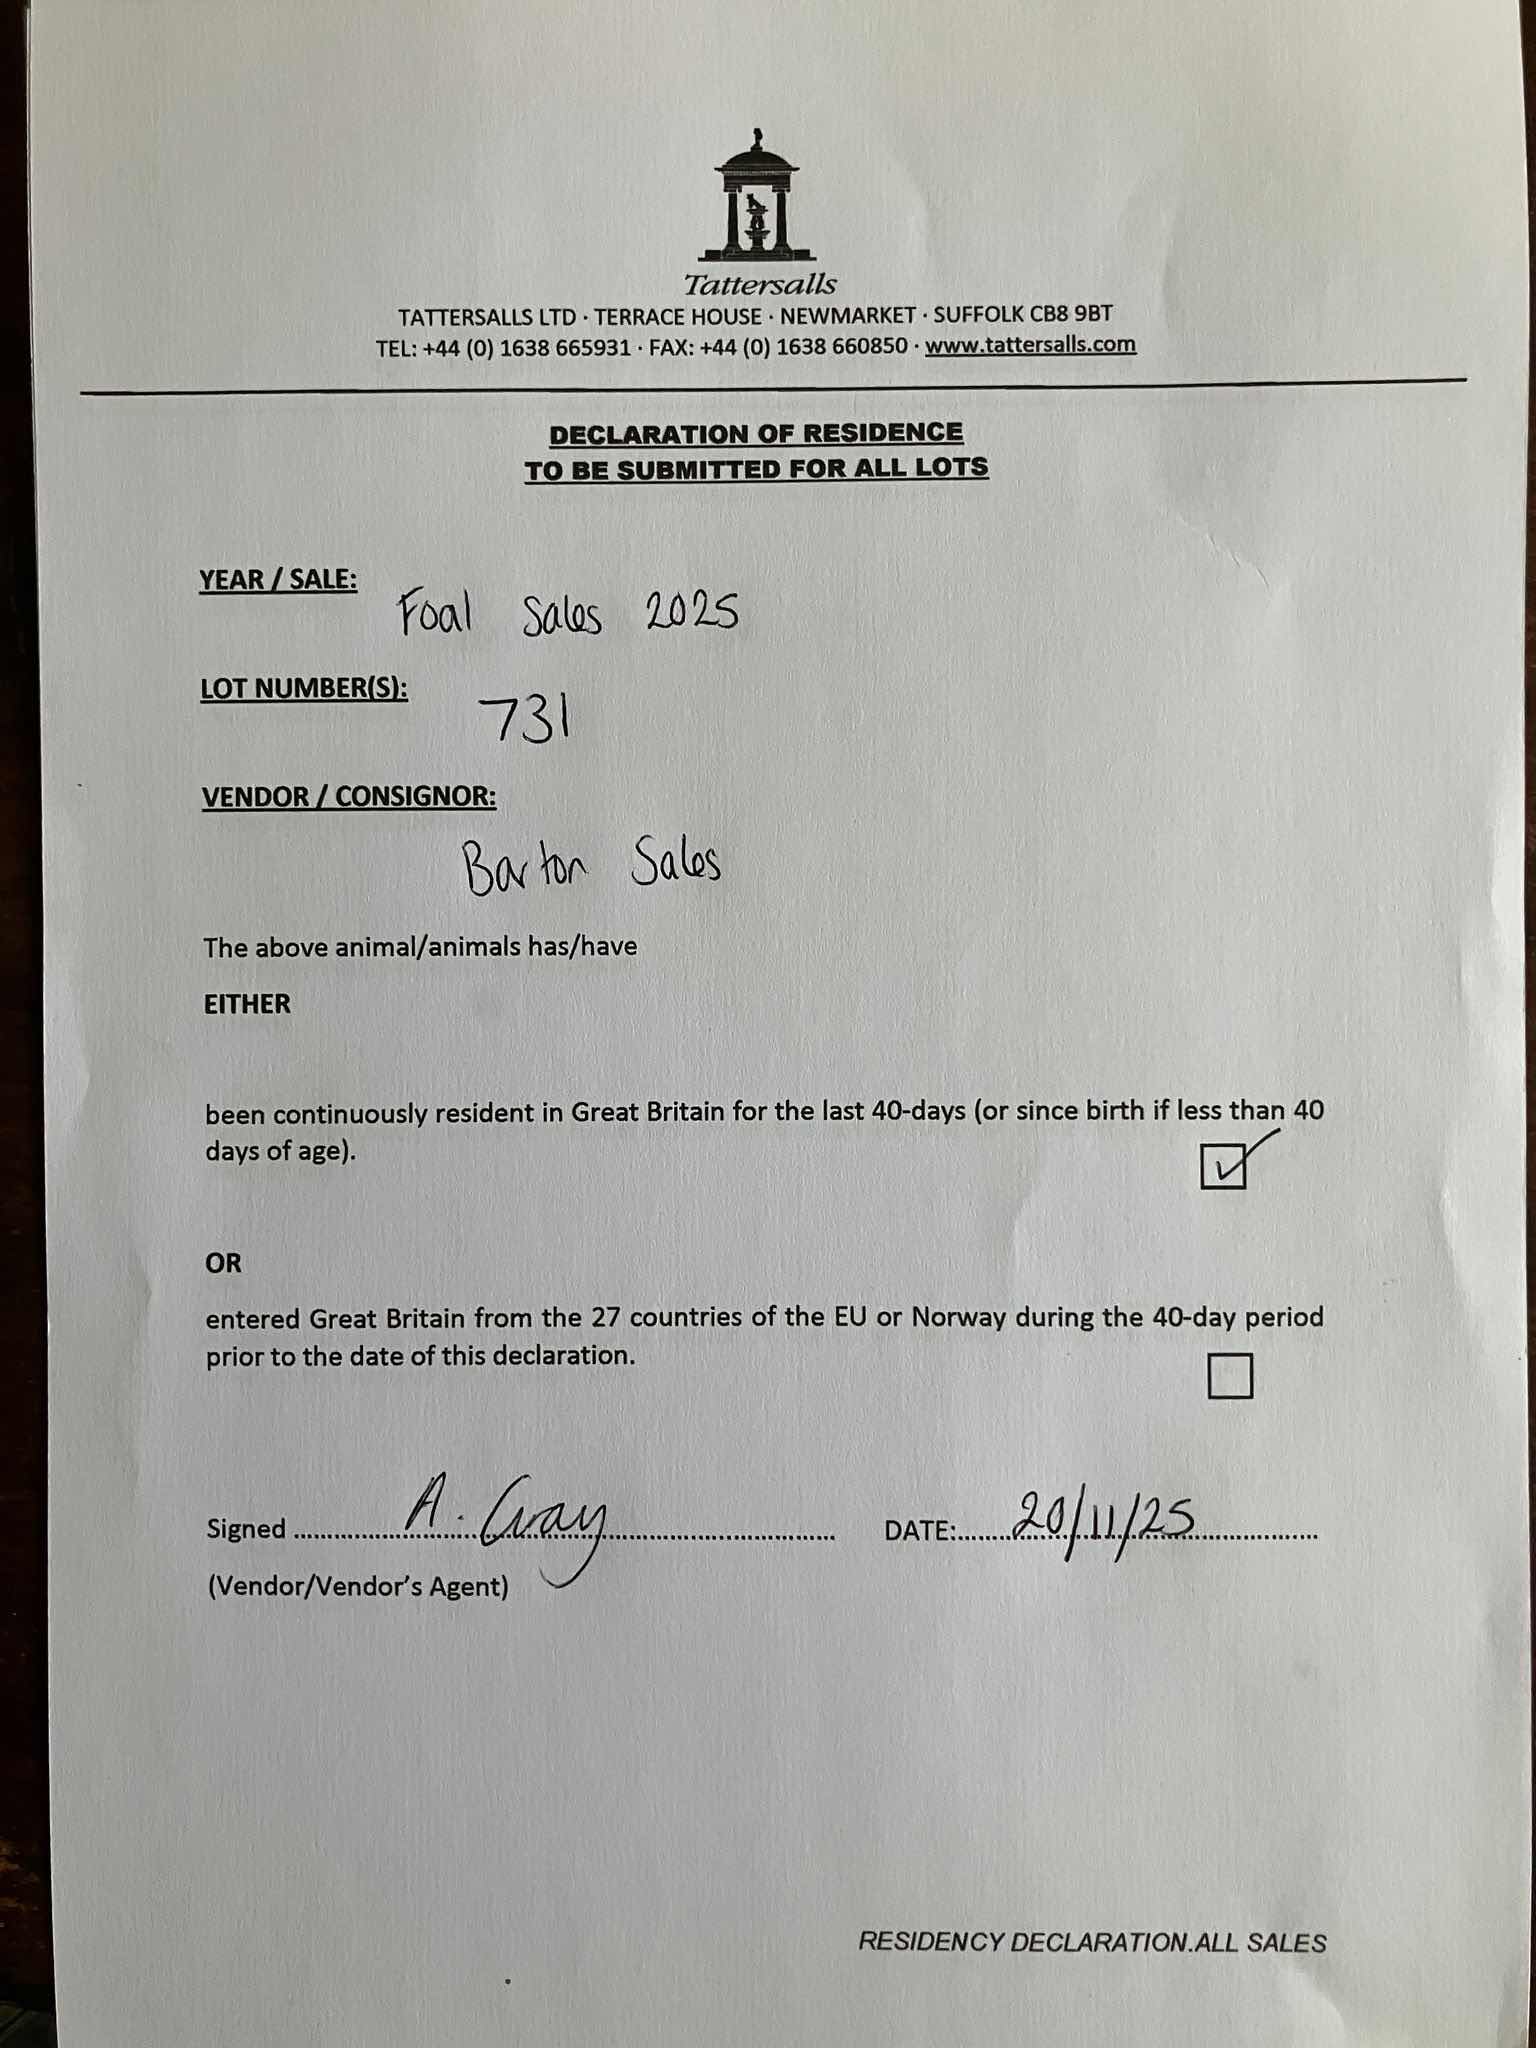 Tattersalls
TATTERSALLS LTD · TERRACE HOUSE · NEWMARKET · SUFFOLK CB8 9BT
TEL: +44 (0) 1638 665931 · FAX: +44 (0) 1638 660850 · www.tattersalls.com
DECLARATION OF RESIDENCE
TO BE SUBMITTED FOR ALL LOTS
YEAR / SALE:
Foal Sales 2025
LOT NUMBER(S):
731
VENDOR / CONSIGNOR:
Barton Sales
The above animal/animals has/have
EITHER
been continuously resident in Great Britain for the last 40-days (or since birth if less than 40
days of age).
OR
entered Great Britain from the 27 countries of the EU or Norway during the 40-day period
prior to the date of this declaration.
Signed A. Gray DATE: 20/11/25
(Vendor/Vendor's Agent)
RESIDENCY DECLARATION.ALL SALES